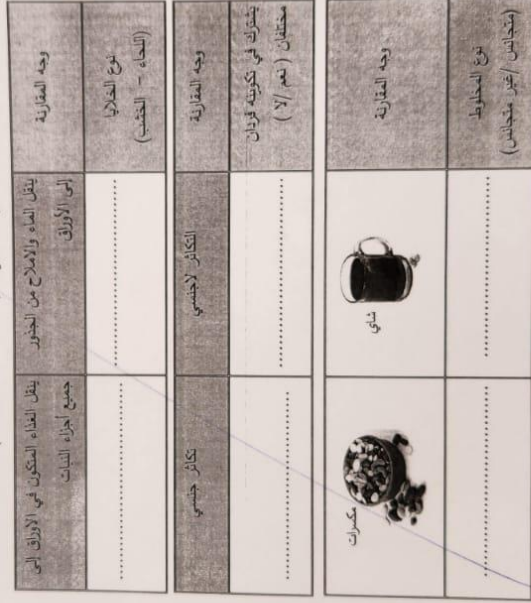 وجه المقارنة
ينقل الماء والاملاح من الجذور
إلى الأوراق
ينقل الغذاء المتكون في الأوراق إلى
جميع أجزاء النبات
نوع الخلايا
(اللحاء - الخشب)
..............................
..............................
وجه المقارنة
التكاثر لاجنسي
تكاثر جنسي
يشترك في تكوينه فردان
مختلفان ( نعم /لا )
..............................
..............................
وجه المقارنة
شاي
مكسرات
نوع المخلوط
(متجانس /غير متجانس)
..............................
..............................